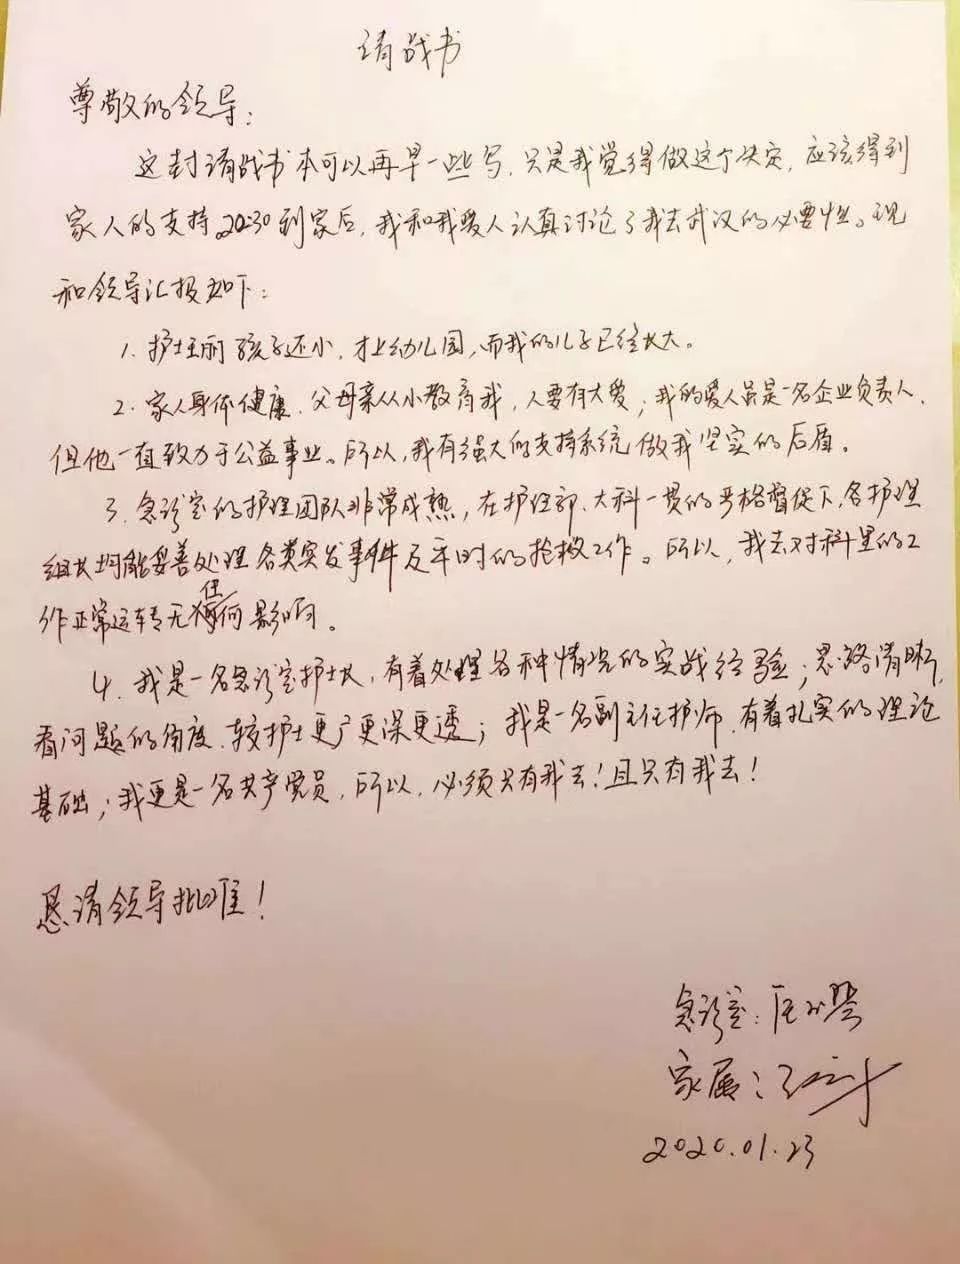 请战书
尊敬的领导：
这封请战书本可以再早一些写，只是我觉得做这个决定，应该得到
家人的支持。20:30到家后，我和我爱人认真讨论了我去武汉的必要性。现
和领导汇报如下：
1. 护士王丽孩子还小，才上幼儿园，而我的儿子已经长大。
2. 家人身体健康，父母亲从小教育我，人要有大爱；我的爱人虽是一名企业负责人，
但他一直致力于公益事业。所以，我有强大的支持系统做我坚实的后盾。
3. 急诊室的护理团队非常成熟，在护理部、大科一贯的严格督促下，各护理
组长均能妥善处理各类突发事件及平时的抢救工作。所以，我去对科里的工
作正常运转无任何影响。
4. 我是一名急诊室护士长，有着处理各种情况的实战经验；思路清晰，
看问题的角度，较护士更广更深更透；我是一名副主任护师，有着扎实的理论
基础；我更是一名共产党员，所以，必须只有我去！且只有我去！
恳请领导批准！
急诊室：
家属：
2020.01.23